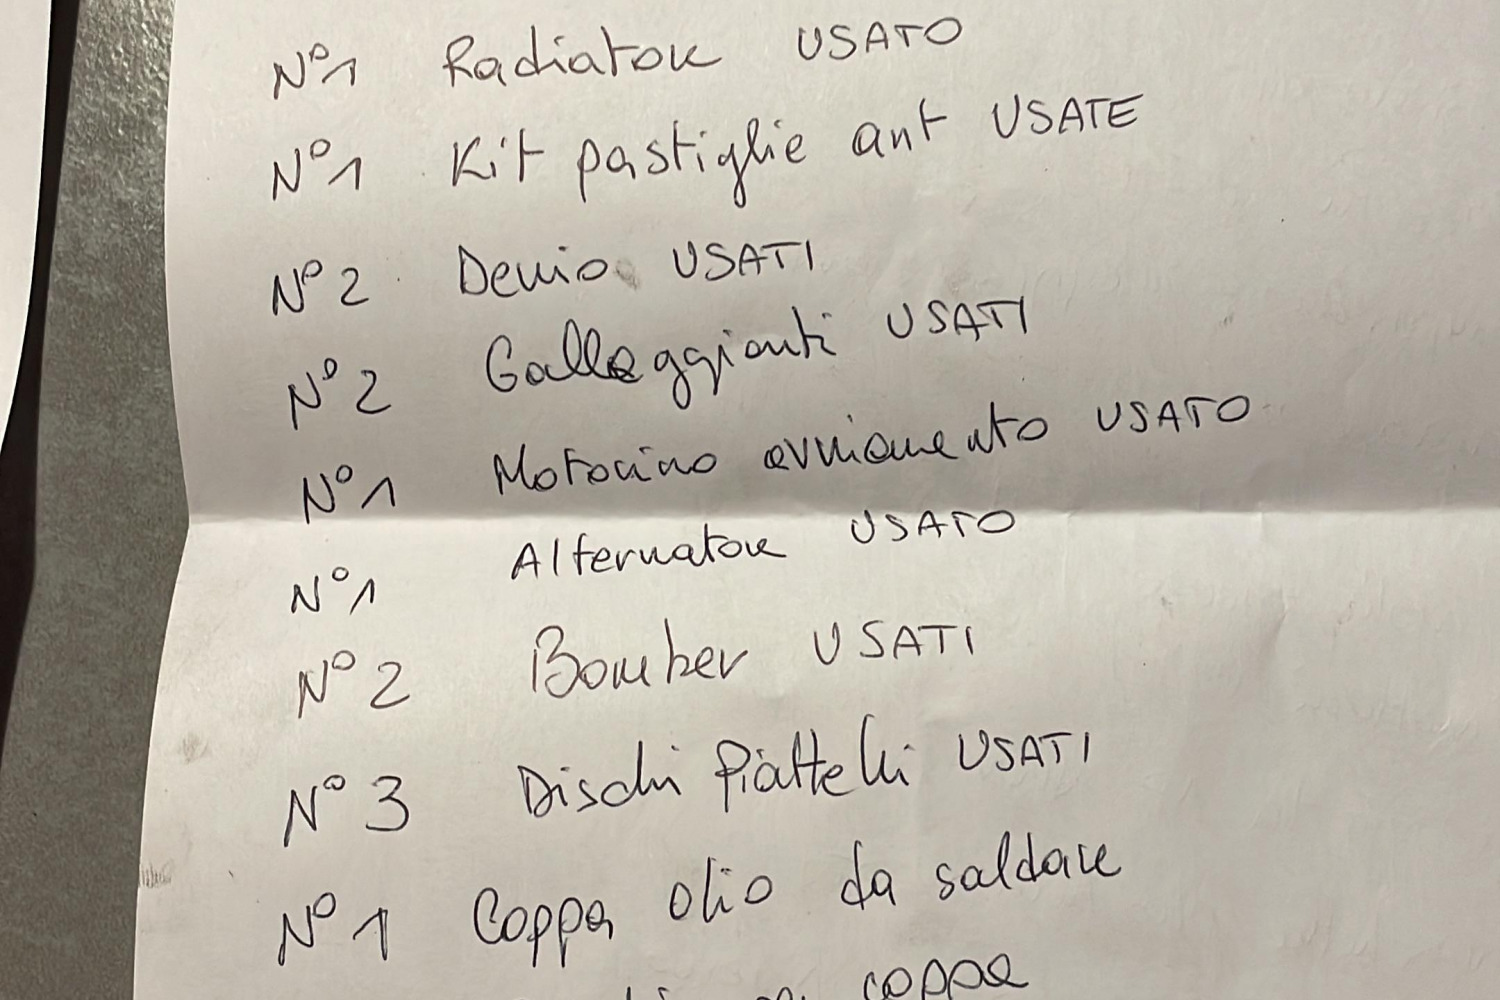 N°1 Radiatore USATO
N°1 Kit pastiglie ant USATE
N°2 Devio USATI
N°2 Galleggianti USATI
N°1 Motorino avviamento USATO
N°1 Alternatore USATO
N°2 Bomber USATI
N°3 Dischi Piattelli USATI
N°1 Coppa olio da saldare
coppa